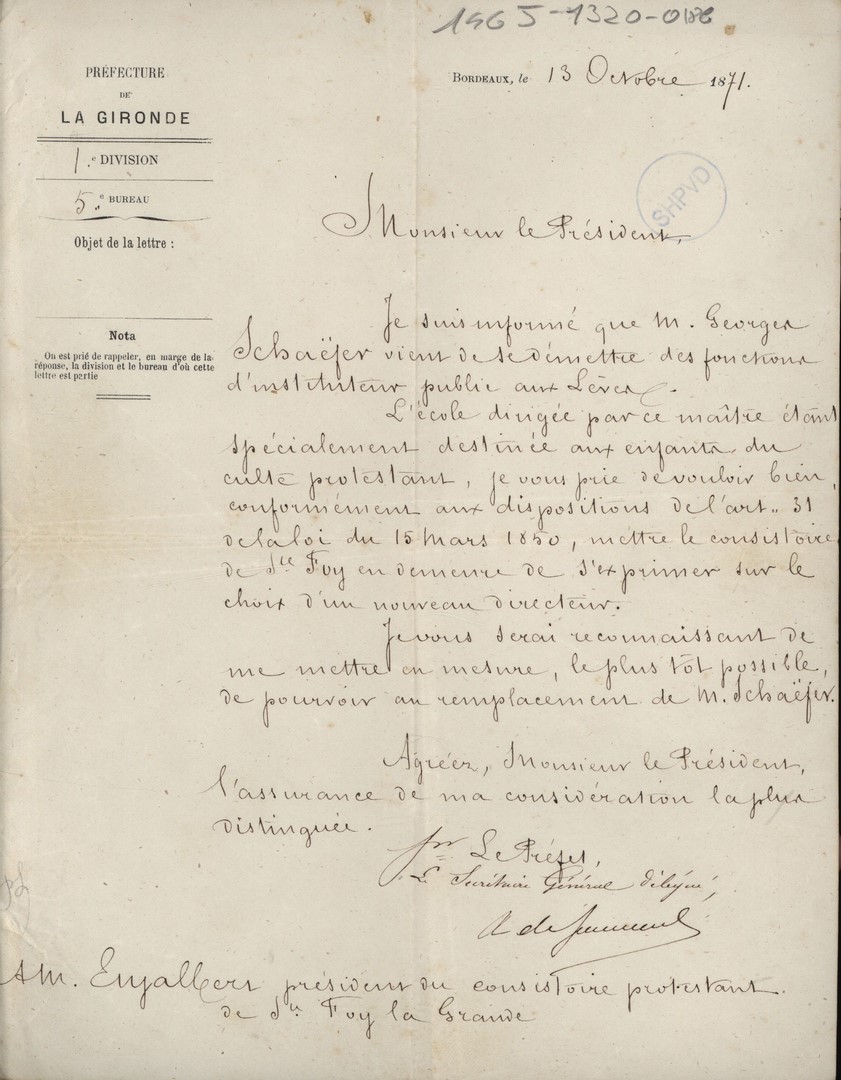 1465-1320-0186
PRÉFECTURE
DE
LA GIRONDE
1.e DIVISION
5.e BUREAU
Objet de la lettre :
Nota
On est prié de rappeler, en marge de la
réponse, la division et le bureau d'où cette
lettre est partie
BORDEAUX, le 13 Octobre 1871.
SHPVD
Monsieur le Président,
Je suis informé que M. Georges
Schaëfer vient de se démettre des fonctions
d'instituteur public aux Lèves.
L'école dirigée par ce maître étant
spécialement destinée aux enfants du
culte protestant, je vous prie de vouloir bien,
conformément aux dispositions de l'art.. 31
de la loi du 15 Mars 1850, mettre le consistoire
de Ste Foy en demeure de s'exprimer sur le
choix d'un nouveau directeur.
Je vous serai reconnaissant de
me mettre en mesure, le plus tôt possible,
de pourvoir au remplacement de M. Schaëfer.
Agréez, Monsieur le Président,
l'assurance de ma considération la plus
distinguée.
pr Le Préfet,
Le Secrétaire Général délégué,
A M. Enjalbert président du consistoire protestant
de Ste Foy la Grande